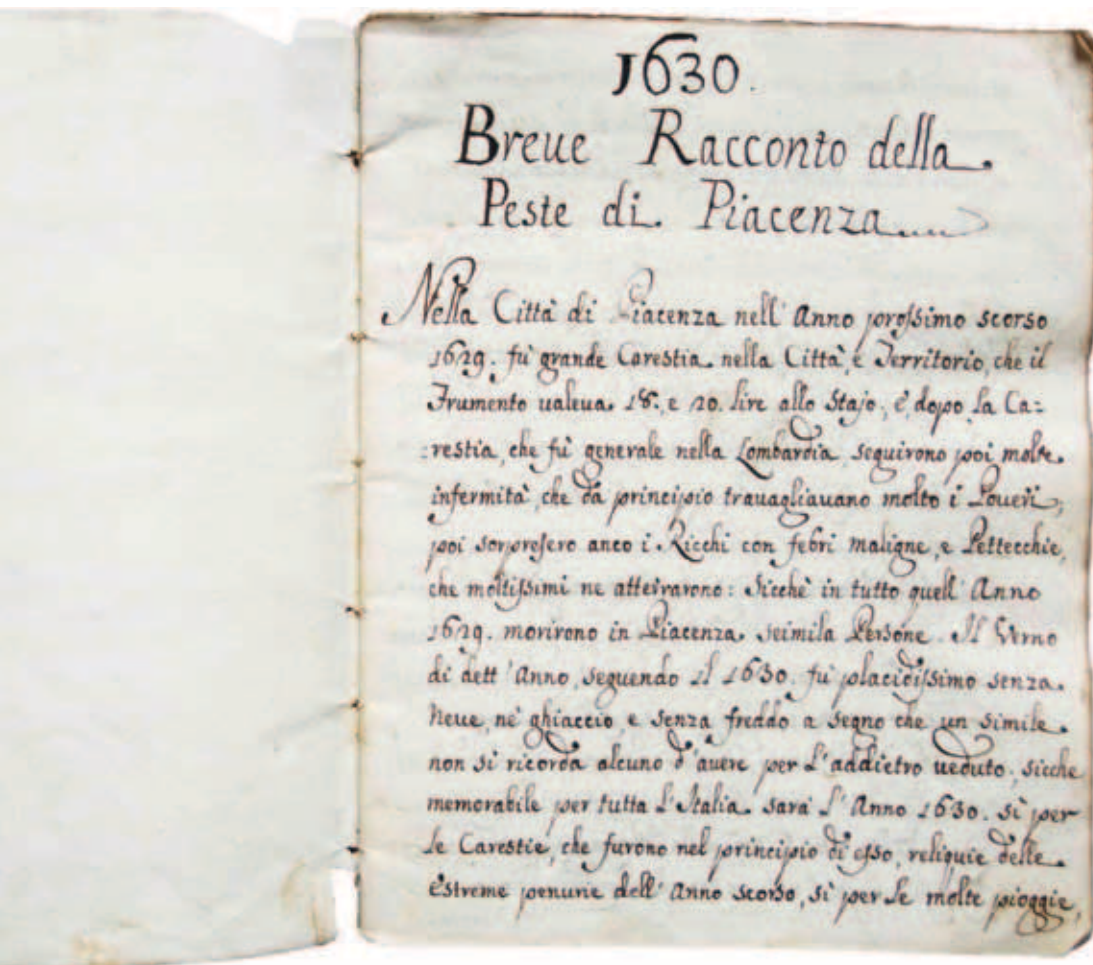 1630.
Breue Racconto della
Peste di Piacenza
Nella Città di Piacenza nell' Anno prossimo scorso
1629. fù grande Carestia nella Città, e Territorio, che il
Frumento ualeua 18., e 20. lire allo Stajo, e dopo la Ca=
=restia, che fù generale nella Lombardia, seguirono poi molte
infermità, che da principio trauagliauano molto i Poueri,
poi sorpresero anco i Ricchi con febri maligne, e Pettecchie,
che moltissimi ne atterrarono: Sicchè in tutto quell' Anno
1629. morirono in Piacenza seimila Persone. Il Verno
di dett' Anno, seguendo il 1630. fù placidissimo senza
Neue, nè ghiaccio, e senza freddo a segno che un simile
non si ricorda alcuno d'auere per l'addietro ueduto, sicche
memorabile per tutta l'Italia sarà l' Anno 1630. sì per
le Carestie, che furono nel principio di esso, reliquie delle
estreme penurie dell' Anno scorso, sì per le molte pioggie,